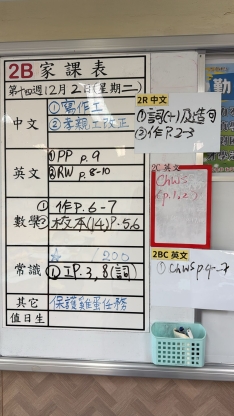 2B 家課表
第十四週12月2日(星期二)
中文
①寫作工
②孝親工改正
英文
①PP p.9
②RW p.8-10
數學
① 作P.6-7
② 校本(14)P.5,6
常識
☆ /200
① 工P.3,8(詞)
其它
保護雞蛋任務
值日生
2R 中文
①詞(十)及造句
②作P.2-3
2C 英文
ChWS
(p.1,2)
2BC 英文
①ChWS p.4-7
勤